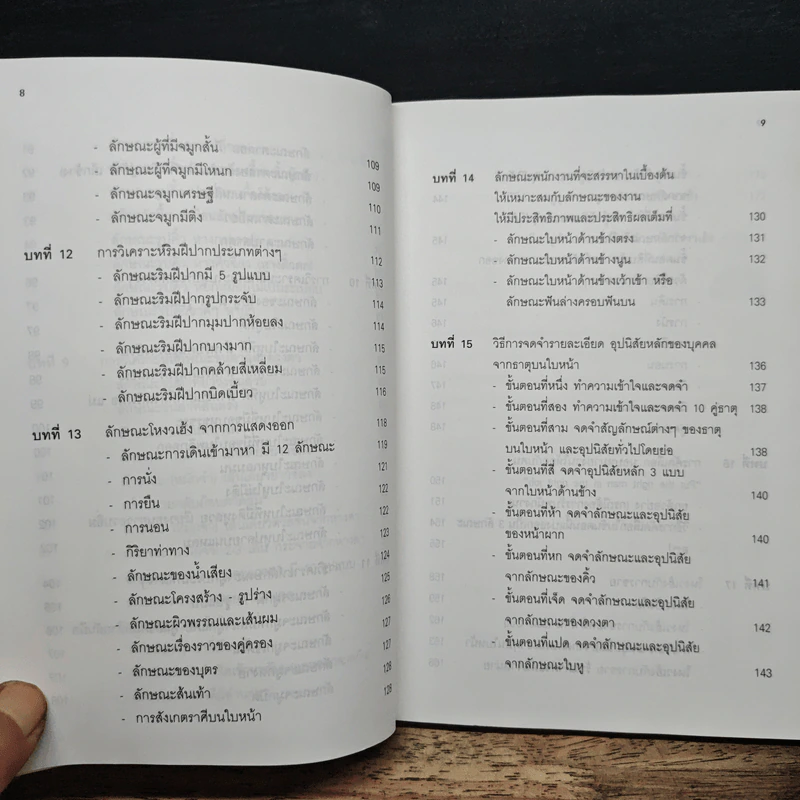 8
- ลักษณะผู้ที่มีจมูกสั้น 109
- ลักษณะผู้ที่จมูกมีโหนก 109
- ลักษณะจมูกเศรษฐี 110
- ลักษณะจมูกมีติ่ง 111
บทที่ 12 การวิเคราะห์ริมฝีปากประเภทต่างๆ 112
- ลักษณะริมฝีปากมี 5 รูปแบบ 113
- ลักษณะริมฝีปากรูปกระจับ 114
- ลักษณะริมฝีปากมุมปากห้อยลง 114
- ลักษณะริมฝีปากบางมาก 115
- ลักษณะริมฝีปากคล้ายสี่เหลี่ยม 115
- ลักษณะริมฝีปากบิดเบี้ยว 116
บทที่ 13 ลักษณะโหงวเฮ้ง จากการแสดงออก 118
- ลักษณะการเดินเข้ามาหา มี 12 ลักษณะ 119
- การนั่ง 121
- การยืน 122
- การนอน 123
- กิริยาท่าทาง 124
- ลักษณะของน้ำเสียง 125
- ลักษณะโครงสร้าง - รูปร่าง 126
- ลักษณะผิวพรรณและเส้นผม 127
- ลักษณะเรื่องราวของคู่ครอง 127
- ลักษณะของบุตร 128
- ลักษณะส้นเท้า 128
- การสังเกตราศีบนใบหน้า
9
บทที่ 14 ลักษณะพนักงานที่จะสรรหาในเบื้องต้น
ให้เหมาะสมกับลักษณะของงาน
ให้มีประสิทธิภาพและประสิทธิผลเต็มที่ 130
- ลักษณะใบหน้าด้านข้างตรง 131
- ลักษณะใบหน้าด้านข้างนูน 132
- ลักษณะใบหน้าด้านข้างเว้าเข้า หรือ
ลักษณะฟันล่างครอบฟันบน 133
บทที่ 15 วิธีการจดจำรายละเอียด อุปนิสัยหลักของบุคคล
จากธาตุบนใบหน้า 136
- ขั้นตอนที่หนึ่ง ทำความเข้าใจและจดจำ 137
- ขั้นตอนที่สอง ทำความเข้าใจและจดจำ 10 คู่ธาตุ 138
- ขั้นตอนที่สาม จดจำสัญลักษณ์ต่างๆ ของธาตุ
บนใบหน้า และอุปนิสัยทั่วไปโดยย่อ 138
- ขั้นตอนที่สี่ จดจำอุปนิสัยหลัก 3 แบบ
จากใบหน้าด้านข้าง 140
- ขั้นตอนที่ห้า จดจำลักษณะและอุปนิสัย
ของหน้าผาก 140
- ขั้นตอนที่หก จดจำลักษณะและอุปนิสัย
จากลักษณะของคิ้ว 141
- ขั้นตอนที่เจ็ด จดจำลักษณะและอุปนิสัย
จากลักษณะของดวงตา 142
- ขั้นตอนที่แปด จดจำลักษณะและอุปนิสัย
จากลักษณะใบหู 143